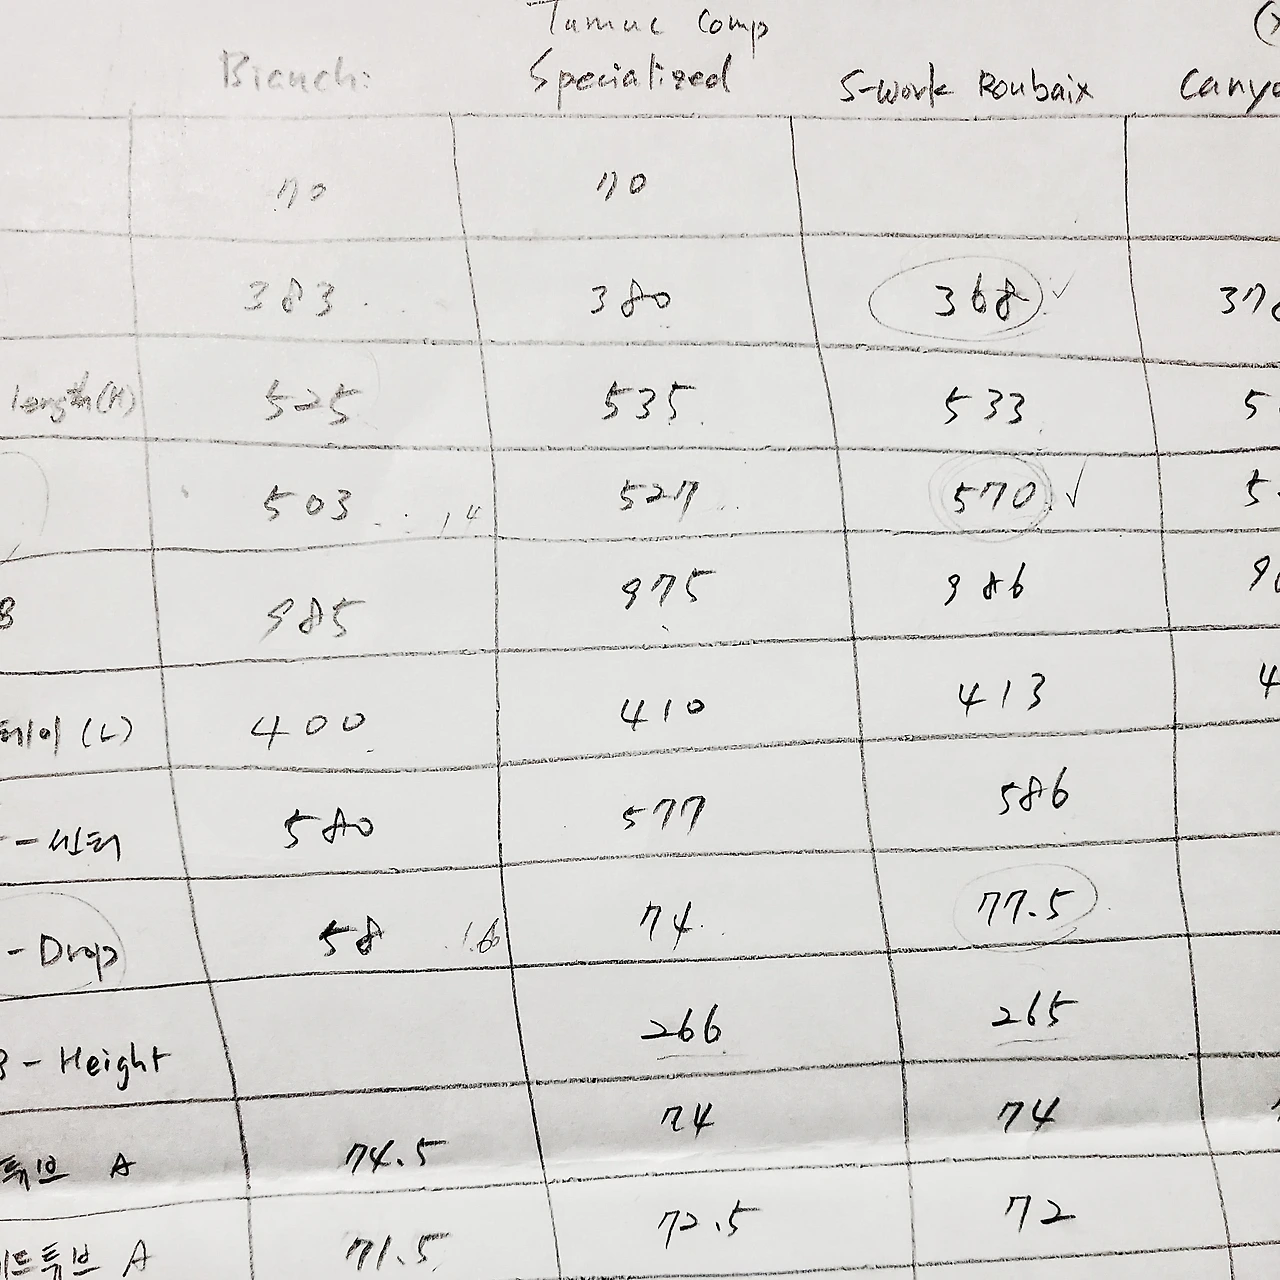 Tamac Comp
Bianchi Specialized S-work Roubaix
70 70
383 380 368 ✓
length(H) 525 535 533
503 14 527 570 ✓
985 975 986
테이 (L) 400 410 413
-쎈터 580 577 586
-Drop 58 16 74 77.5
- Height 266 265
튜브 A 74.5 74 74
드튜브 A 71.5 72.5 72